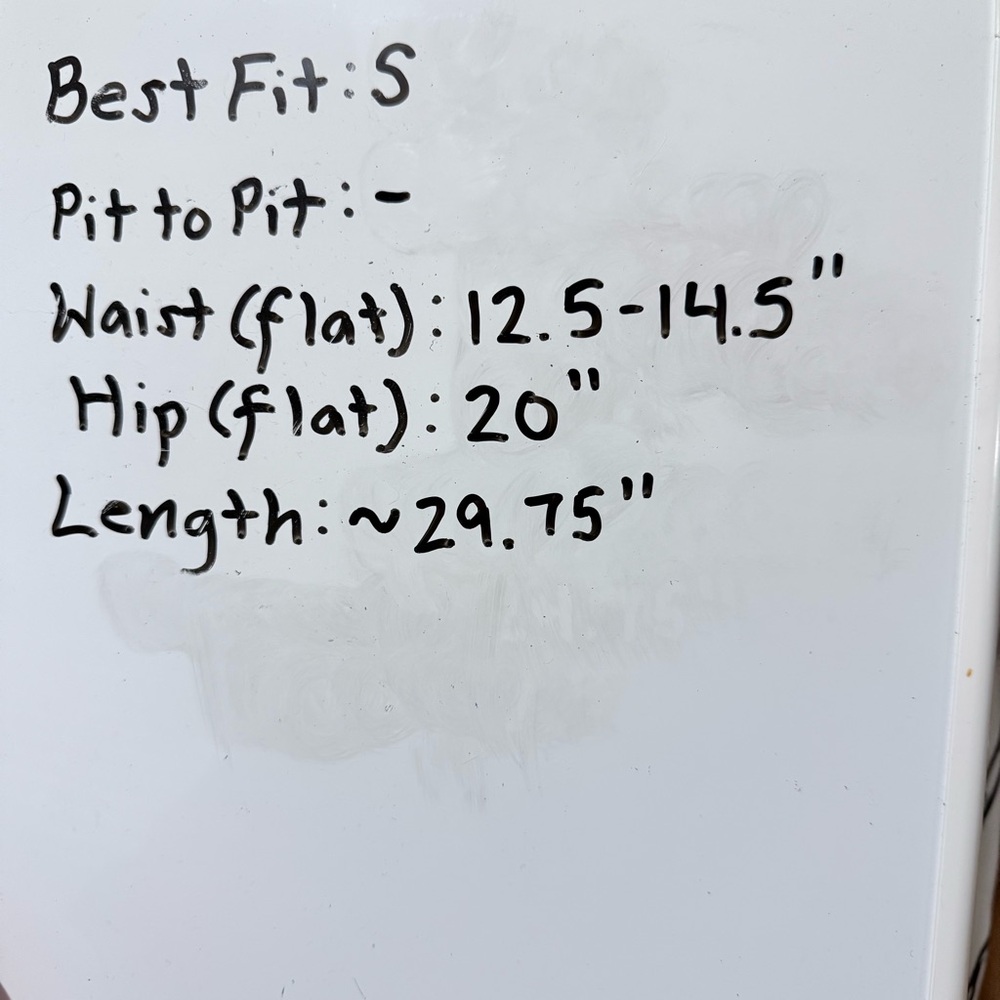 Best Fit: S
Pit to Pit: -
Waist (flat): 12.5-14.5"
Hip (flat): 20"
Length: ~29.75"